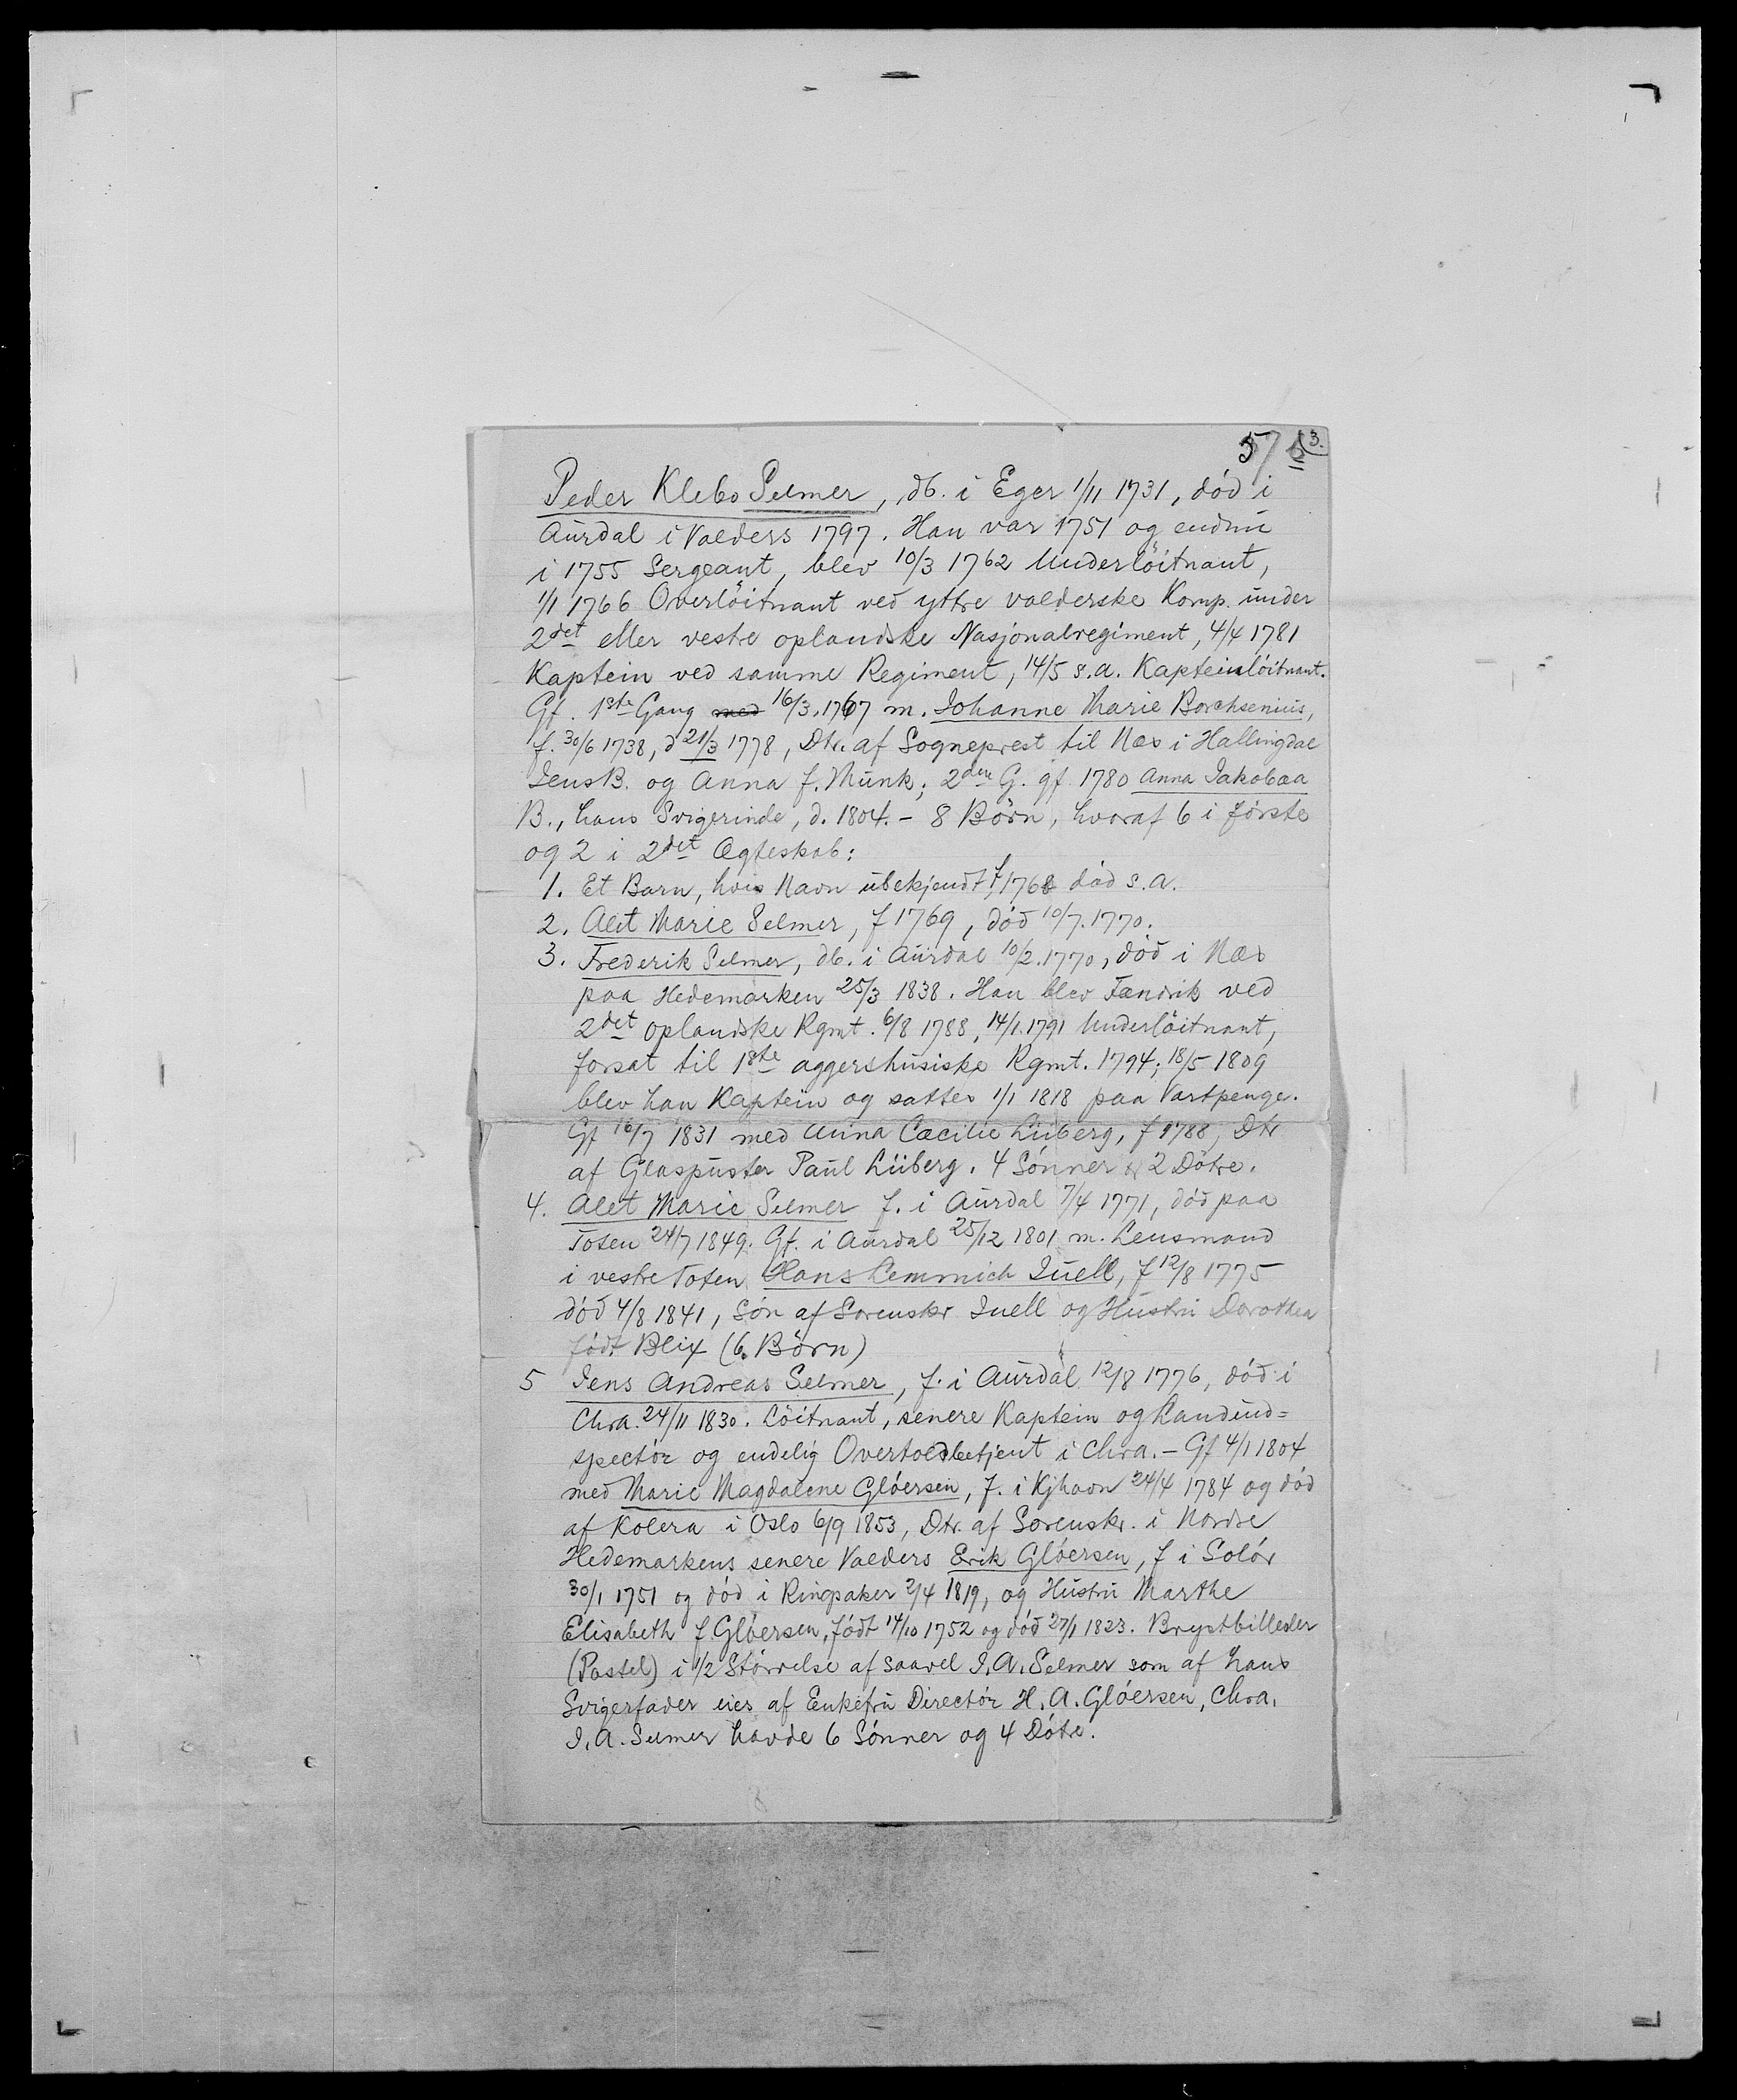 57 3.
Peder Klebo Selmer, db. i Eger 1/11 1731, död i
Aurdal i Valders 1797. Han var 1751 og endnu
i 1755 Sergeant, blev 10/3 1762 Underlöitnant,
1/1 1766 Overlöitnant ved yttre valderske Komp. under
2det eller vestre oplandske Nasjonalregiment, 4/4 1781
Kaptein ved samme Regiment, 14/5 s.a. Kapteinlöitnant.
Gf. 1ste Gang med 16/3.1767 m. Johanne Marie Borchsenius,
f. 30/6 1738, d 21/3 1778, Dtr. af Sogneprest til Næs i Hallingdal
Jens B. og Anna f. Munk; 2den G. gf. 1780 Anna Jakobæa
B., hans Svigerinde, d. 1804. - 8 Börn, hvoraf 6 i förste
og 2 i 2det Ægteskab:
1. Et Barn, hvis Navn ubekjendt, f 1768 död s.a.
2. Alet Marie Selmer, f 1769, död 10/7.1770.
3. Frederik Selmer, db. i Aurdal 10/2.1770, död i Næs
paa Hedemarken 25/3 1838. Han blev Fændrik ved
2det oplandske Rgmt. 6/8 1788, 14/1.1791 Underlöitnant,
forsat til 1ste aggershusiske Rgmt. 1794; 18/5 1809
blev han Kaptein og sattes 1/1 1818 paa Vartpenge.
Gf 16/7 1831 med Anna Cæcilie Liiberg, f 1788, Dtr
af Glaspuster Paul Liiberg. 4 Sönner & 2 Dötre.
4. Alet Marie Selmer f. i Aurdal 7/4 1771, död paa
Toten 24/7 1849. Gf. i Aurdal 25/12 1801 m. Lensmand
i vestre Toten Hans Lemmich Juell, f 12/8 1775
död 4/8 1841, Sön af Sorenskr Juell og Hustru Dorothea
födt Blix (6. Börn)
5 Jens Andreas Selmer, f. i Aurdal 12/8 1776, död i
Chra. 24/11 1830. Löitnant, senere Kaptein og Landind=
spectör og endelig Overtoldbetjent i Chra. - Gf 4/1 1804
med Marie Magdalene Glöersen, f. i Kjhavn 24/4 1784 og död
af Kolera i Oslo 6/9 1853, Dtr. af Sorenskr. i Nordre
Hedemarkens senere Valders Erik Glöersen, f i Solör
30/1 1751 og död i Ringsaker 2/4 1819, og Hustru Marthe
Elisabeth f. Glöersen, födt 14/10 1752 og död 27/1 1823. Brystbilleder
(Pastel) i 1/2 Störrelse af saavel J. A. Selmer som af hans
Svigerfader eies af Enkefru Directör H. A. Glöersen, Chra.
J. A. Selmer havde 6 Sönner og 4 Dötre.